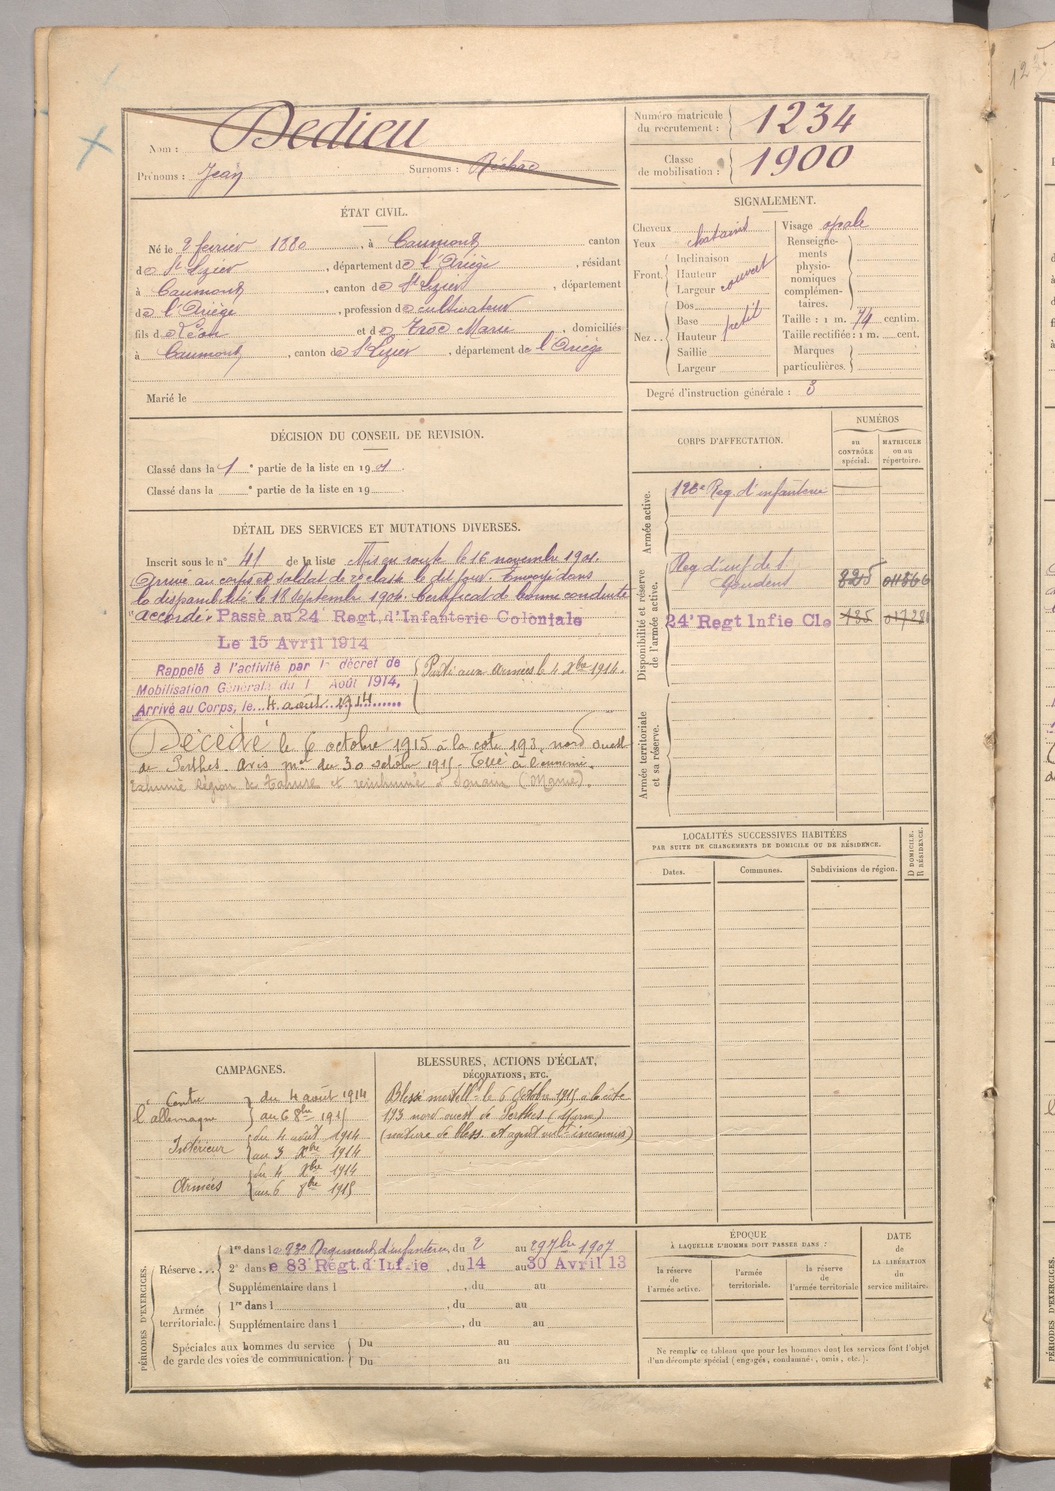 Nom : Dedieu
Prénoms : Jean Surnoms :
Numéro matricule du recrutement : 1234
Classe de mobilisation : 1900
ÉTAT CIVIL.
Né le 2 février 1880, à Caumont, canton
de St Lizier, département de l'Ariège, résidant
à Caumont, canton de St Lizier, département
de l'Ariège, profession de cultivateur
fils de Léon et de Marie, domiciliés
à Caumont, canton de St Lizier, département de l'Ariège
Marié le
SIGNALEMENT.
Cheveux
Yeux
chatains
Inclinaison
Front. Hauteur couvert
Largeur
Dos
Base
Nez .. Hauteur petit
Saillie
Largeur
Visage ovale
Renseignements physionomiques complémentaires.
Taille : 1 m. 74 centim.
Taille rectifiée : 1 m. cent.
Marques particulières.
Degré d'instruction générale : 3
DÉCISION DU CONSEIL DE REVISION.
Classé dans la 1 e partie de la liste en 1901.
Classé dans la e partie de la liste en 19
DÉTAIL DES SERVICES ET MUTATIONS DIVERSES.
Inscrit sous le n° 41 de la liste Mis en route le 16 novembre 1901.
Arrivé au corps et soldat de 2e classe le dit jour. Envoyé dans
la disponibilité le 18 septembre 1904. Certificat de bonne conduite
"accordé". Passé au 24e Regt, d'Infanterie Coloniale
Le 15 Avril 1914
Rappelé à l'activité par le décret de
Mobilisation Générale du 1 Août 1914,
Arrivé au Corps, le 4 août 1914
Parti aux Armées le 4 Xbre 1914.
Décédé le 6 octobre 1915 à la cote 193, nord ouest
de Perthes. Avis mel du 30 octobre 1915. Tué à l'ennemi.
Exhumé région de Tahure et réinhumé à Souain (Marne).
CORPS D'AFFECTATION.
NUMÉROS
au CONTRÔLE spécial.
MATRICULE ou au répertoire.
Armée active.
Reg. d'infanterie
Disponibilité et réserve de l'armée active.
Reg d'inf de St
Gaudens
24e Regt Infie Cle
Armée territoriale et sa réserve.
LOCALITÉS SUCCESSIVES HABITÉES
PAR SUITE DE CHANGEMENTS DE DOMICILE OU DE RÉSIDENCE.
Dates.
Communes.
Subdivisions de région.
D DOMICILE.
R RÉSIDENCE.
CAMPAGNES.
Contre du 4 août 1914
l'allemagne au 6 8bre 1915
Intérieur du 4 août 1914
au 3 Xbre 1914
Armées du 4 Xbre 1914
au 6 8bre 1915
BLESSURES, ACTIONS D'ÉCLAT,
DÉCORATIONS, ETC.
Blessé mortellt le 6 octobre 1915 à la côte
193 nord ouest de Perthes (Marne)
(nature de bless. et agent vuln. inconnus)
PÉRIODES D'EXERCICES.
Réserve ...
1re dans le 83e Régiment d'infanterie, du 2 au 29 7bre 1907
2e dans le 83 Régt. d'Infie, du 14 au 30 Avril 13
Supplémentaire dans l , du au
Armée territoriale.
1re dans l , du au
Supplémentaire dans l , du au
Spéciales aux hommes du service
de garde des voies de communication.
Du au
Du au
ÉPOQUE
À LAQUELLE L'HOMME DOIT PASSER DANS :
la réserve de l'armée active.
l'armée territoriale.
la réserve de l'armée territoriale
DATE
de
LA LIBÉRATION
du
service militaire.
Ne remplir ce tableau que pour les hommes dont les services font l'objet
d'un décompte spécial (engagés, condamnés, omis, etc.).